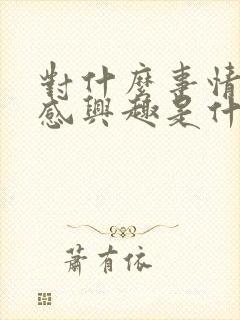 對什麼事情
感興趣是什
蕭有依